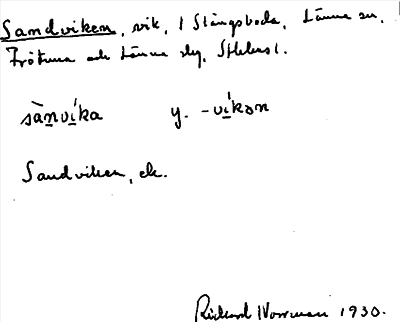 Sandviken, vik, i Slångsboda, Länna sn,
Frötuna och Länna slg, Sthlms l.
sànvíka y. -víkən
Sandviken, ek.
Rickard Norrman 1930.